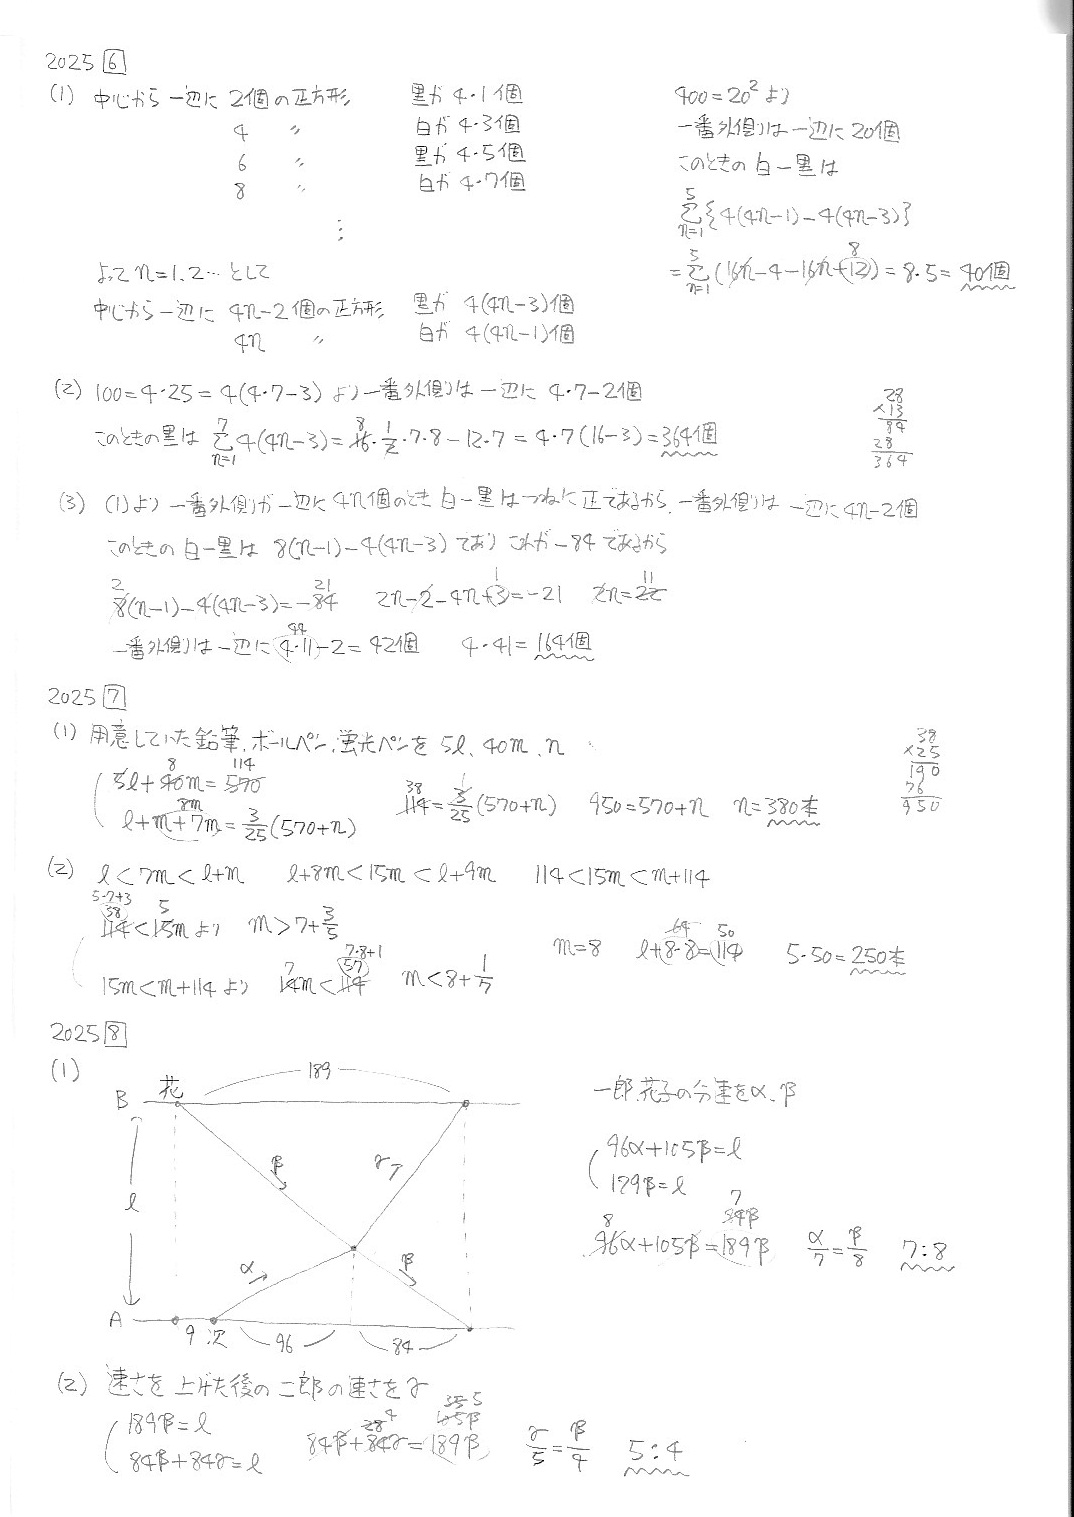 2025 6
(1) 中心から一辺に 2個の正方形 黒が 4・1個
4 〃 白が 4・3個
6 〃 黒が 4・5個
8 〃 白が 4・7個
⋮
よって n=1, 2… として
中心から一辺に 4n-2個の正方形 黒が 4(4n-3)個
4n 〃 白が 4(4n-1)個
400=20² より
一番外側は一辺に20個
このときの白-黒は
5 Σ n=1 {4(4n-1)-4(4n-3)}
= 5 Σ n=1 (16n-4-16n+12) 8 = 8・5 = 40個
(2) 100=4・25=4(4・7-3) より一番外側は一辺に 4・7-2個
このときの黒は 7 Σ n=1 4(4n-3)= 8 16・1/2・7・8-12・7 = 4・7(16-3)=364個
28
×13
84
28
364
(3) (1)より 一番外側が一辺に4n個のとき 白-黒はつねに正であるから、一番外側は一辺に4n-2個
このときの白-黒は 8(n-1)-4(4n-3) であり これが-84であるから
2 21 1 11
8(n-1)-4(4n-3)=-84 2n-2-4n+3=-21 2n=22
44
一番外側は一辺に 4・11-2=42個 4・41=164個
2025 7
(1) 用意していた鉛筆、ボールペン、蛍光ペンを 5l、40m、n
8 114
5l+40m=570
8m
l+m+7m=3/25(570+n)
38 1
114=3/25(570+n) 950=570+n n=380本
38
×25
190
76
950
(2) l<7m<l+m l+8m<15m<l+9m 114<15m<m+114
5・7+3
38 5
114<15mより m>7+3/5
7・8+1
7 57
15m<m+114より 14m<114 m<8+1/7
64 50
m=8 l+8・8=114 5・50=250本
2025 8
(1)
189
B 花
β γ
l
α β
A
9 次 96 84
一郎、花子の分速をα、β
96α+105β=l
129β=l
7
8 84β
96α+105β=189β α/7=β/8 7:8
(2) 速さを上げた後の二郎の速さをγ
189β=l
84β+84γ=l
35 5
28 4 105β
84β+84γ=189β γ/5=β/4 5:4